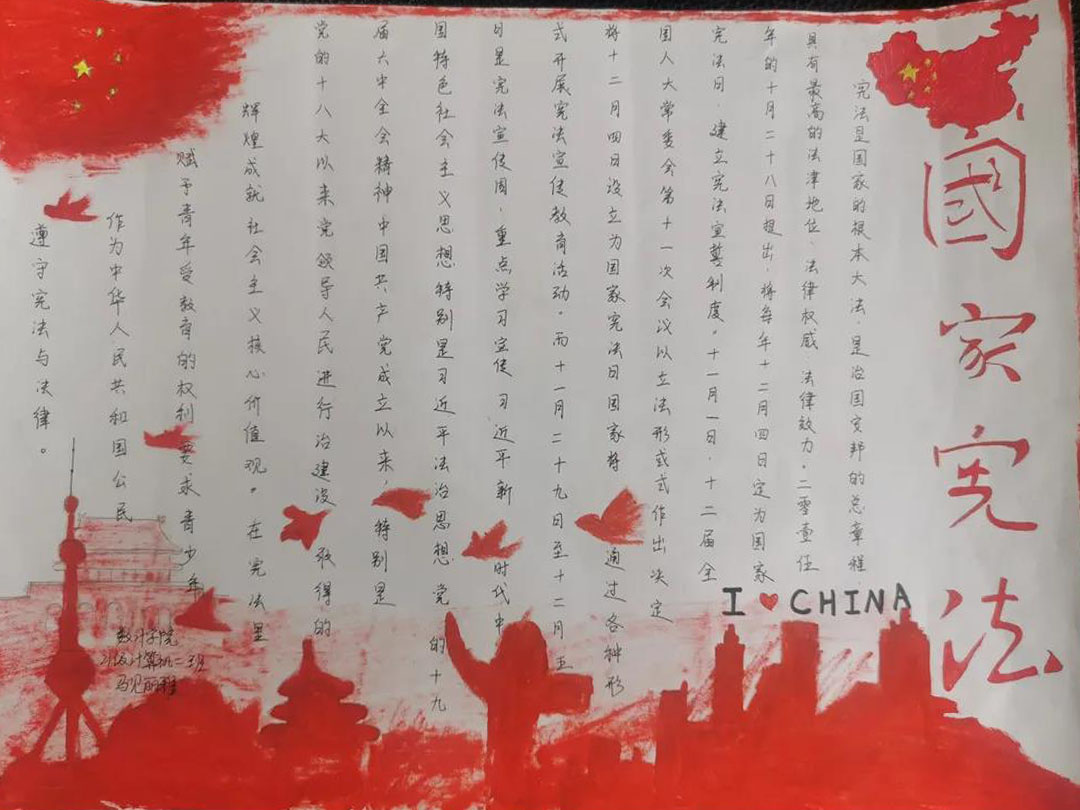 國家宪法
宪法是国家的根本大法，是治国安邦的总章程，
具有最高的法津地位、法律权威、法律效力。二零壹任
年的十月二十八日提出，将每年十二月四日定为国家
宪法日，建立宪法宣誓制度。十一月一日，十二届全
国人大常委会第十一次会议以立法形式式作出决定
将十二月四日设立为国家宪法日国家将通过各种形
式开展宪法宣传教育活动。而十一月二十九日至十二月五
日是宪法宣传周，重点学习宣传习近平新时代中
国特色社会主义思想特别是习近平法治思想党的十九
届六中全会精神中国共产党成立以来，特别是
党的十八大以来党领导人民进行治建设取得的
辉煌成就社会主义核心价值观。在宪法里
赋予青年受教育的权利要求青少年
作为中华人民共和国公民
遵守宪法与法律。
I ❤ CHINA
数计学院
计算机二班